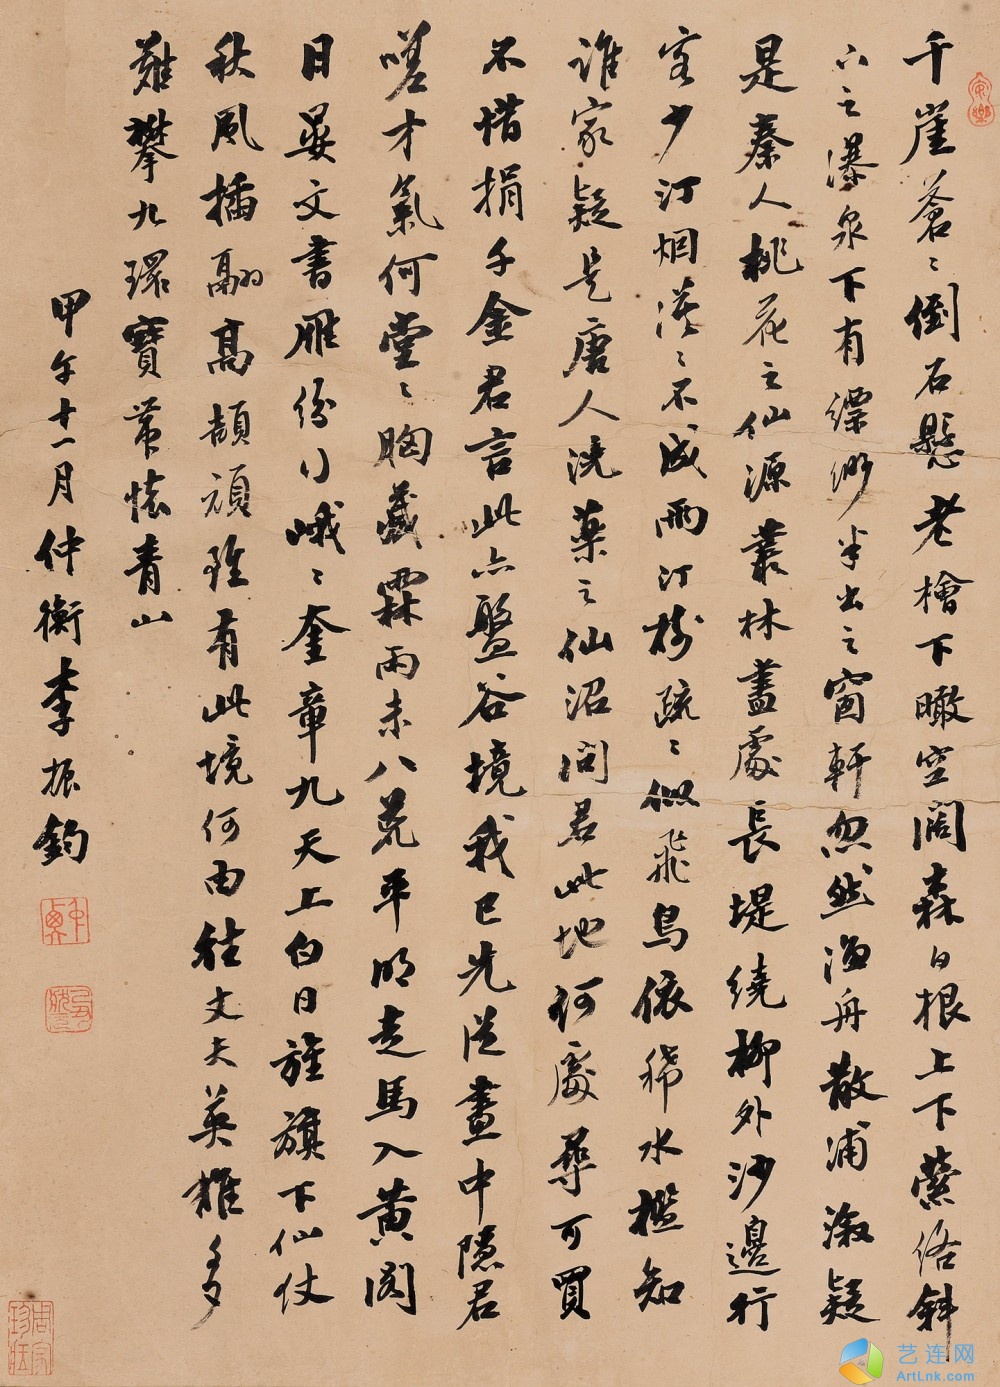 千崖蒼〻倒石懸老檜下瞰空闊森白根上下縈絡斜
穴之瀑泉下有縹緲半出之窗軒忽然漁舟散浦漵疑
是秦人桃花之仙源叢林盡處長堤繞柳外沙邊行
客少汀烟漠〻不成雨汀樹疏〻似飛鳥依稀水檻知
誰家疑是唐人洗藥之仙沼問君此地何處尋可買
不惜捐千金君言此亦盤谷境我已先從畫中隱君
嗟才氣何堂〻胸藏霖雨未八荒平明走馬入黄閣
日晏文書雁行峨〻奎章九天上白日旌旗下仙仗
秋風播翮高頡頏雖有此境何由往丈夫英雄多
難攀九環寶帶懷青山
甲午十一月仲衡李振鈞
安樂
周家珍莊
艺连网
ArtLnk.com